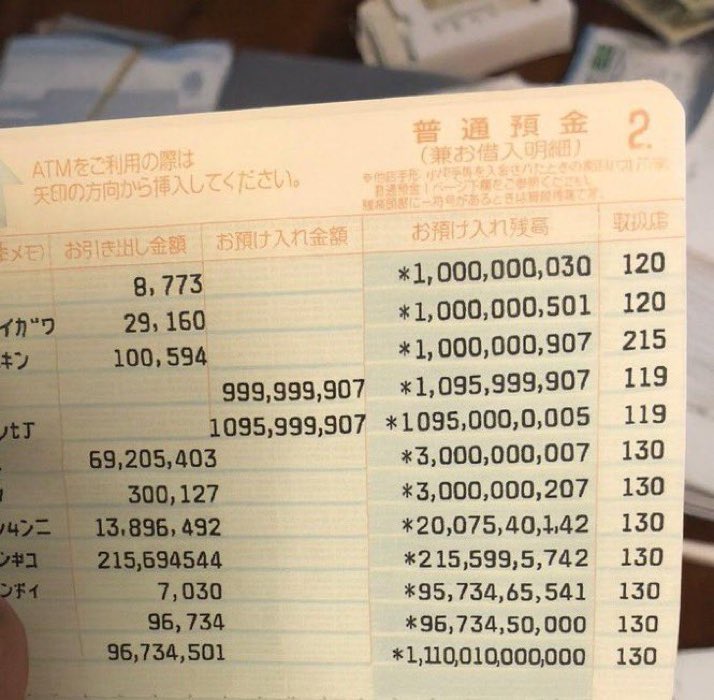 普通預金 2.
(兼お借入明細)
ATMをご利用の際は
矢印の方向から挿入してください。
メモ) お引き出し金額 お預け入れ金額 お預け入れ残高 取扱店
8,773 *1,000,000,030 120
イガワ 29,160 *1,000,000,501 120
キン 100,594 *1,000,000,907 215
999,999,907 *1,095,999,907 119
1095,999,907 *1095,000,0,005 119
69,205,403 *3,000,000,007 130
300,127 *3,000,000,207 130
13,896,492 *20,075,40,1,42 130
215,694544 *215,599,5,742 130
7,030 *95,734,65,541 130
96,734 *96,734,50,000 130
96,734,501 *1,110,010,000,000 130